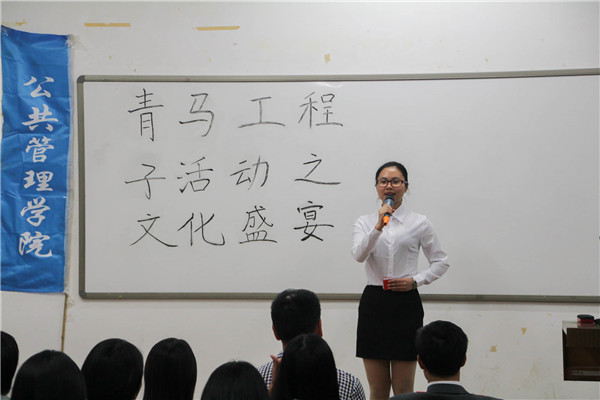 公共管理学院
青马工程
子活动之
文化盛宴